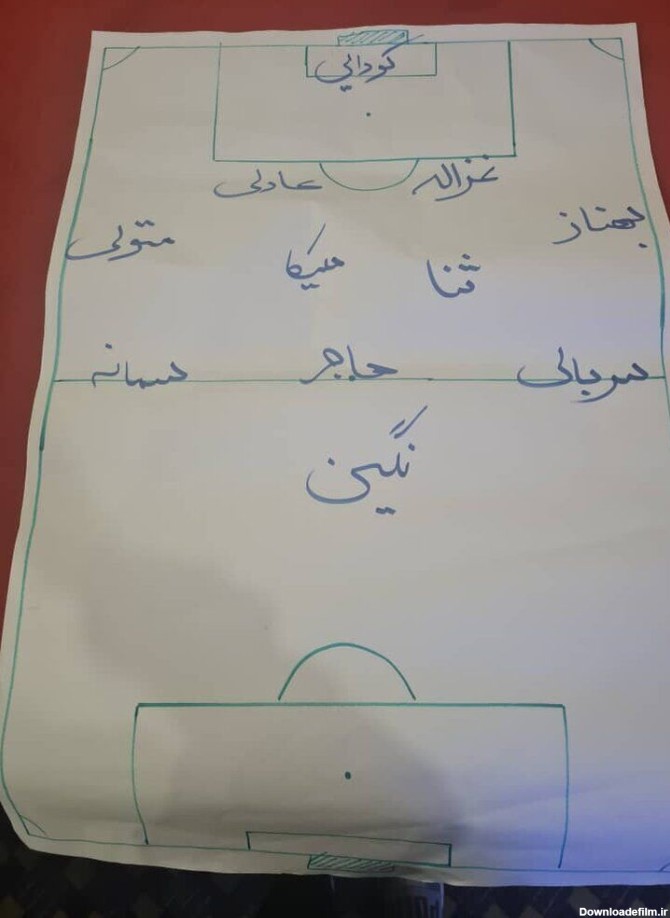 کودائی
غزاله عادلی
بهناز متولی
ثنا ملیکا
سربالی هاجر سمانه
نگین
Downloadefilm.ir